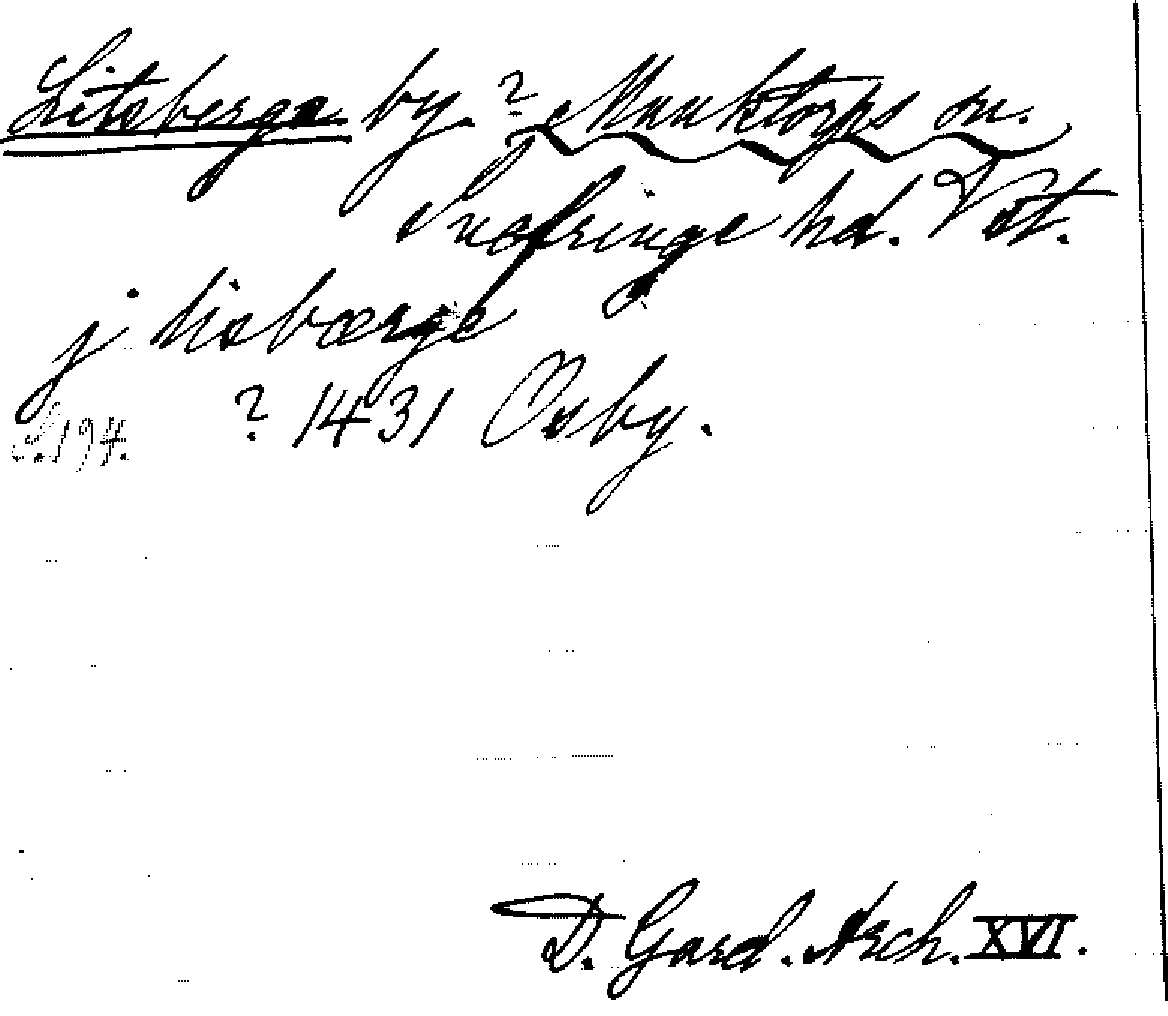 Litsberga by. ? Munktorps sn.
? Snefringe hd. Vstm.
j lisbærge
? 1431 Osby.
S. 194.
D. Gard. Arch. XVI.